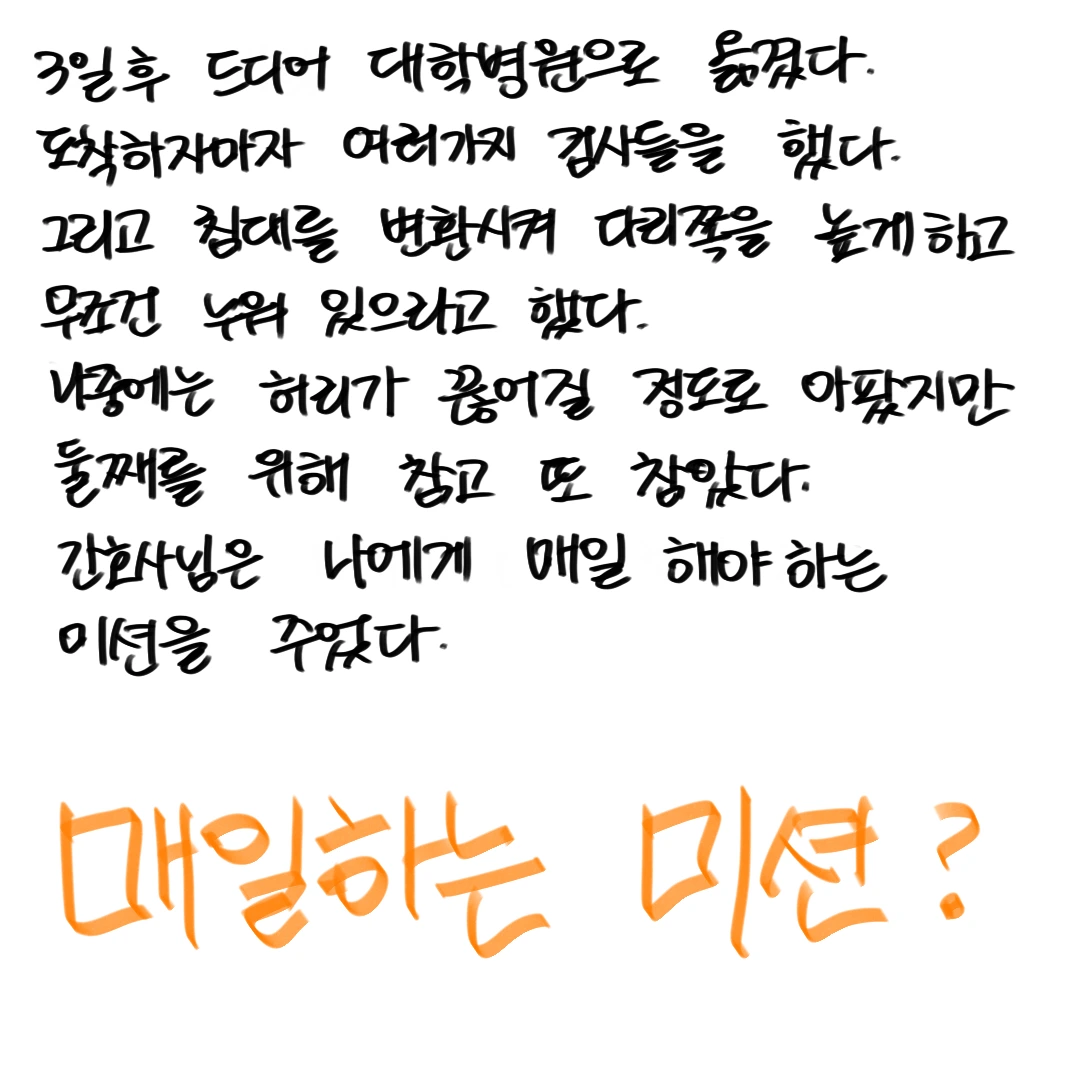 3일후 드디어 대학병원으로 옮겼다.
도착하자마자 여러가지 검사들을 했다.
그리고 침대를 변환시켜 다리쪽을 높게하고
무조건 누워 있으라고 했다.
나중에는 허리가 끊어질 정도로 아팠지만
둘째를 위해 참고 또 참았다.
간호사님은 나에게 매일 해야하는
미션을 주었다.
매일하는 미션?